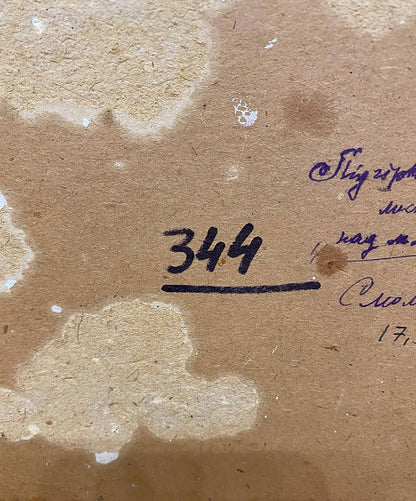 344
Підгірк
над м
Смол
17,